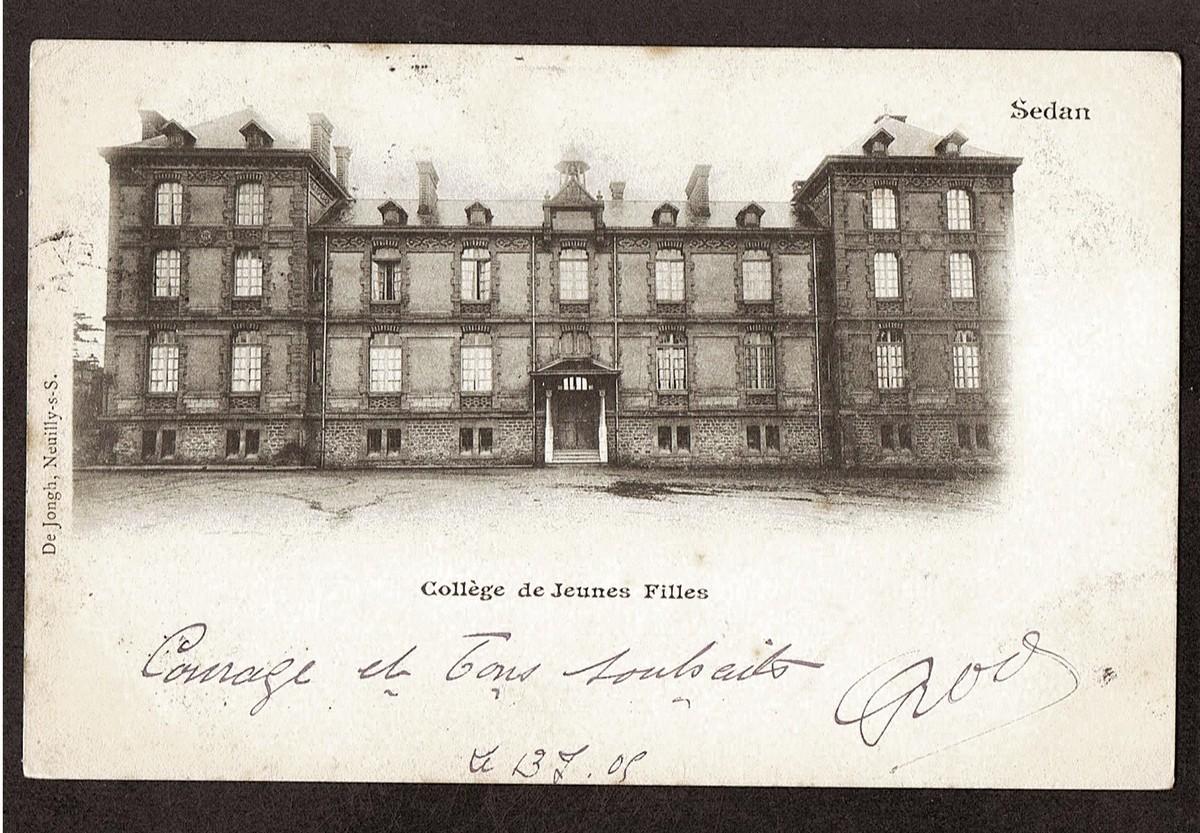 Sedan
De Jongh, Neuilly-s-S.
Collège de Jeunes Filles
Courage et Bons souhaits
Le 13 7. 05